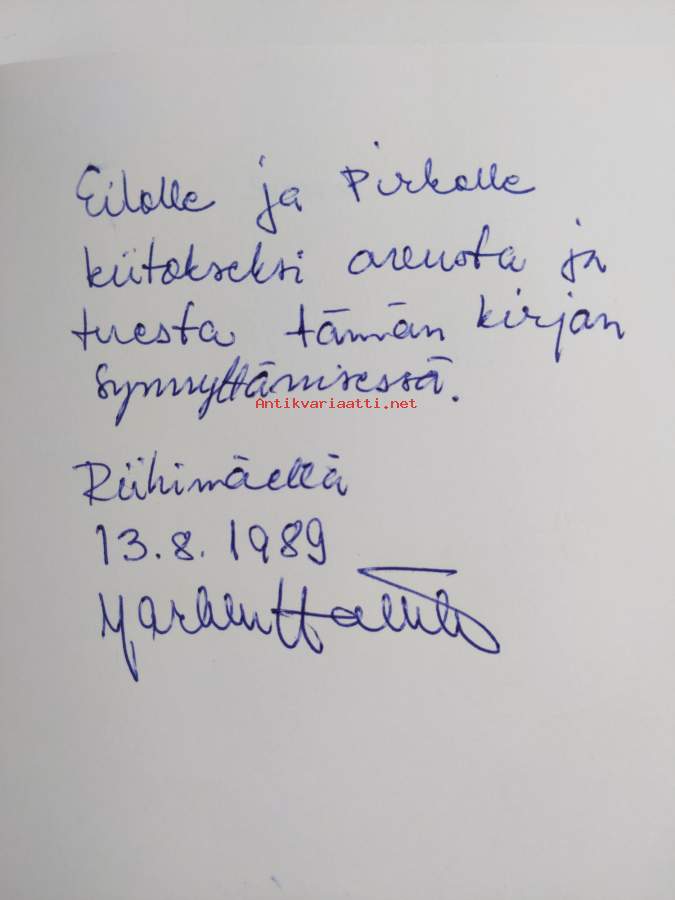 Eilalle ja Pirkolle
kiitokseksi avusta ja
tuesta tämän kirjan
synnyttämisessä.
Antikvariaatti.net
Riihimäellä
13.8.1989